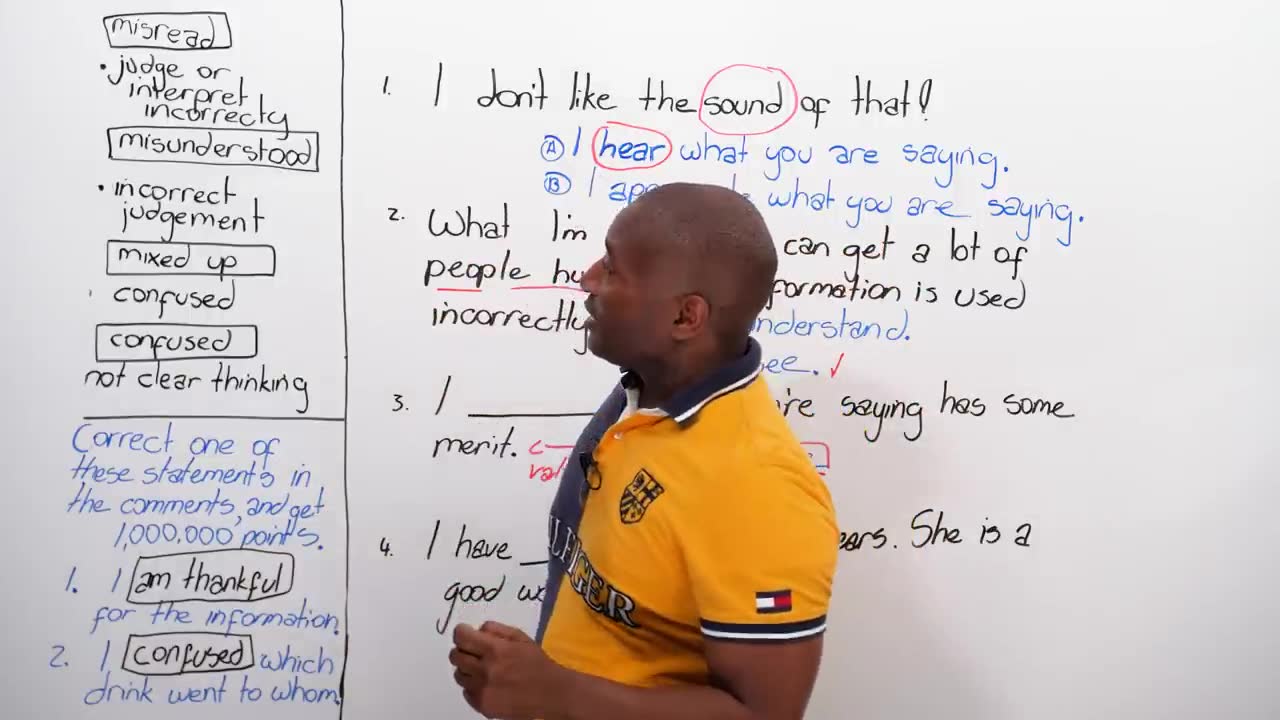 misread
• judge or
interpret
incorrecty
misunderstood
• incorrect
judgement
mixed up
confused
confused
not clear thinking
Correct one of
these statements in
the comments, and get
1,000,000 points.
1. I am thankful
for the information.
2. I confused which
drink went to whom.
1. I don't like the sound of that!
A I hear what you are saying.
B I what you are saying.
2. What I'm can get a lot of
people is used
incorrectly
3. I saying has some
merit.
4. I have She is a
good
HILFIGER